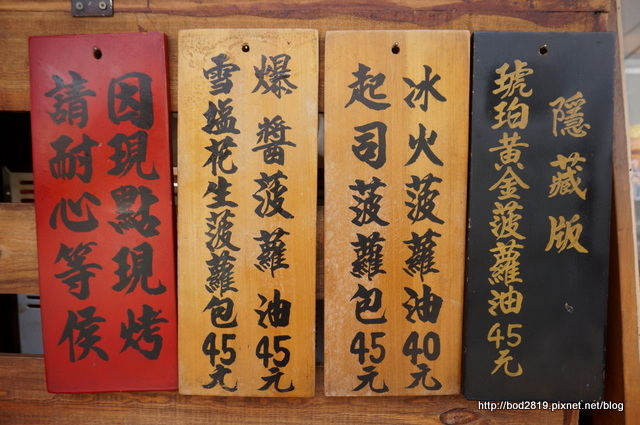 隱藏版
琥珀黃金菠蘿油45元
冰火菠蘿油40元
起司菠蘿包45元
爆醬菠蘿油45元
雪塩花生菠蘿包45元
因現點現烤
請耐心等侯
http://bod2819.pixnet.net/blog